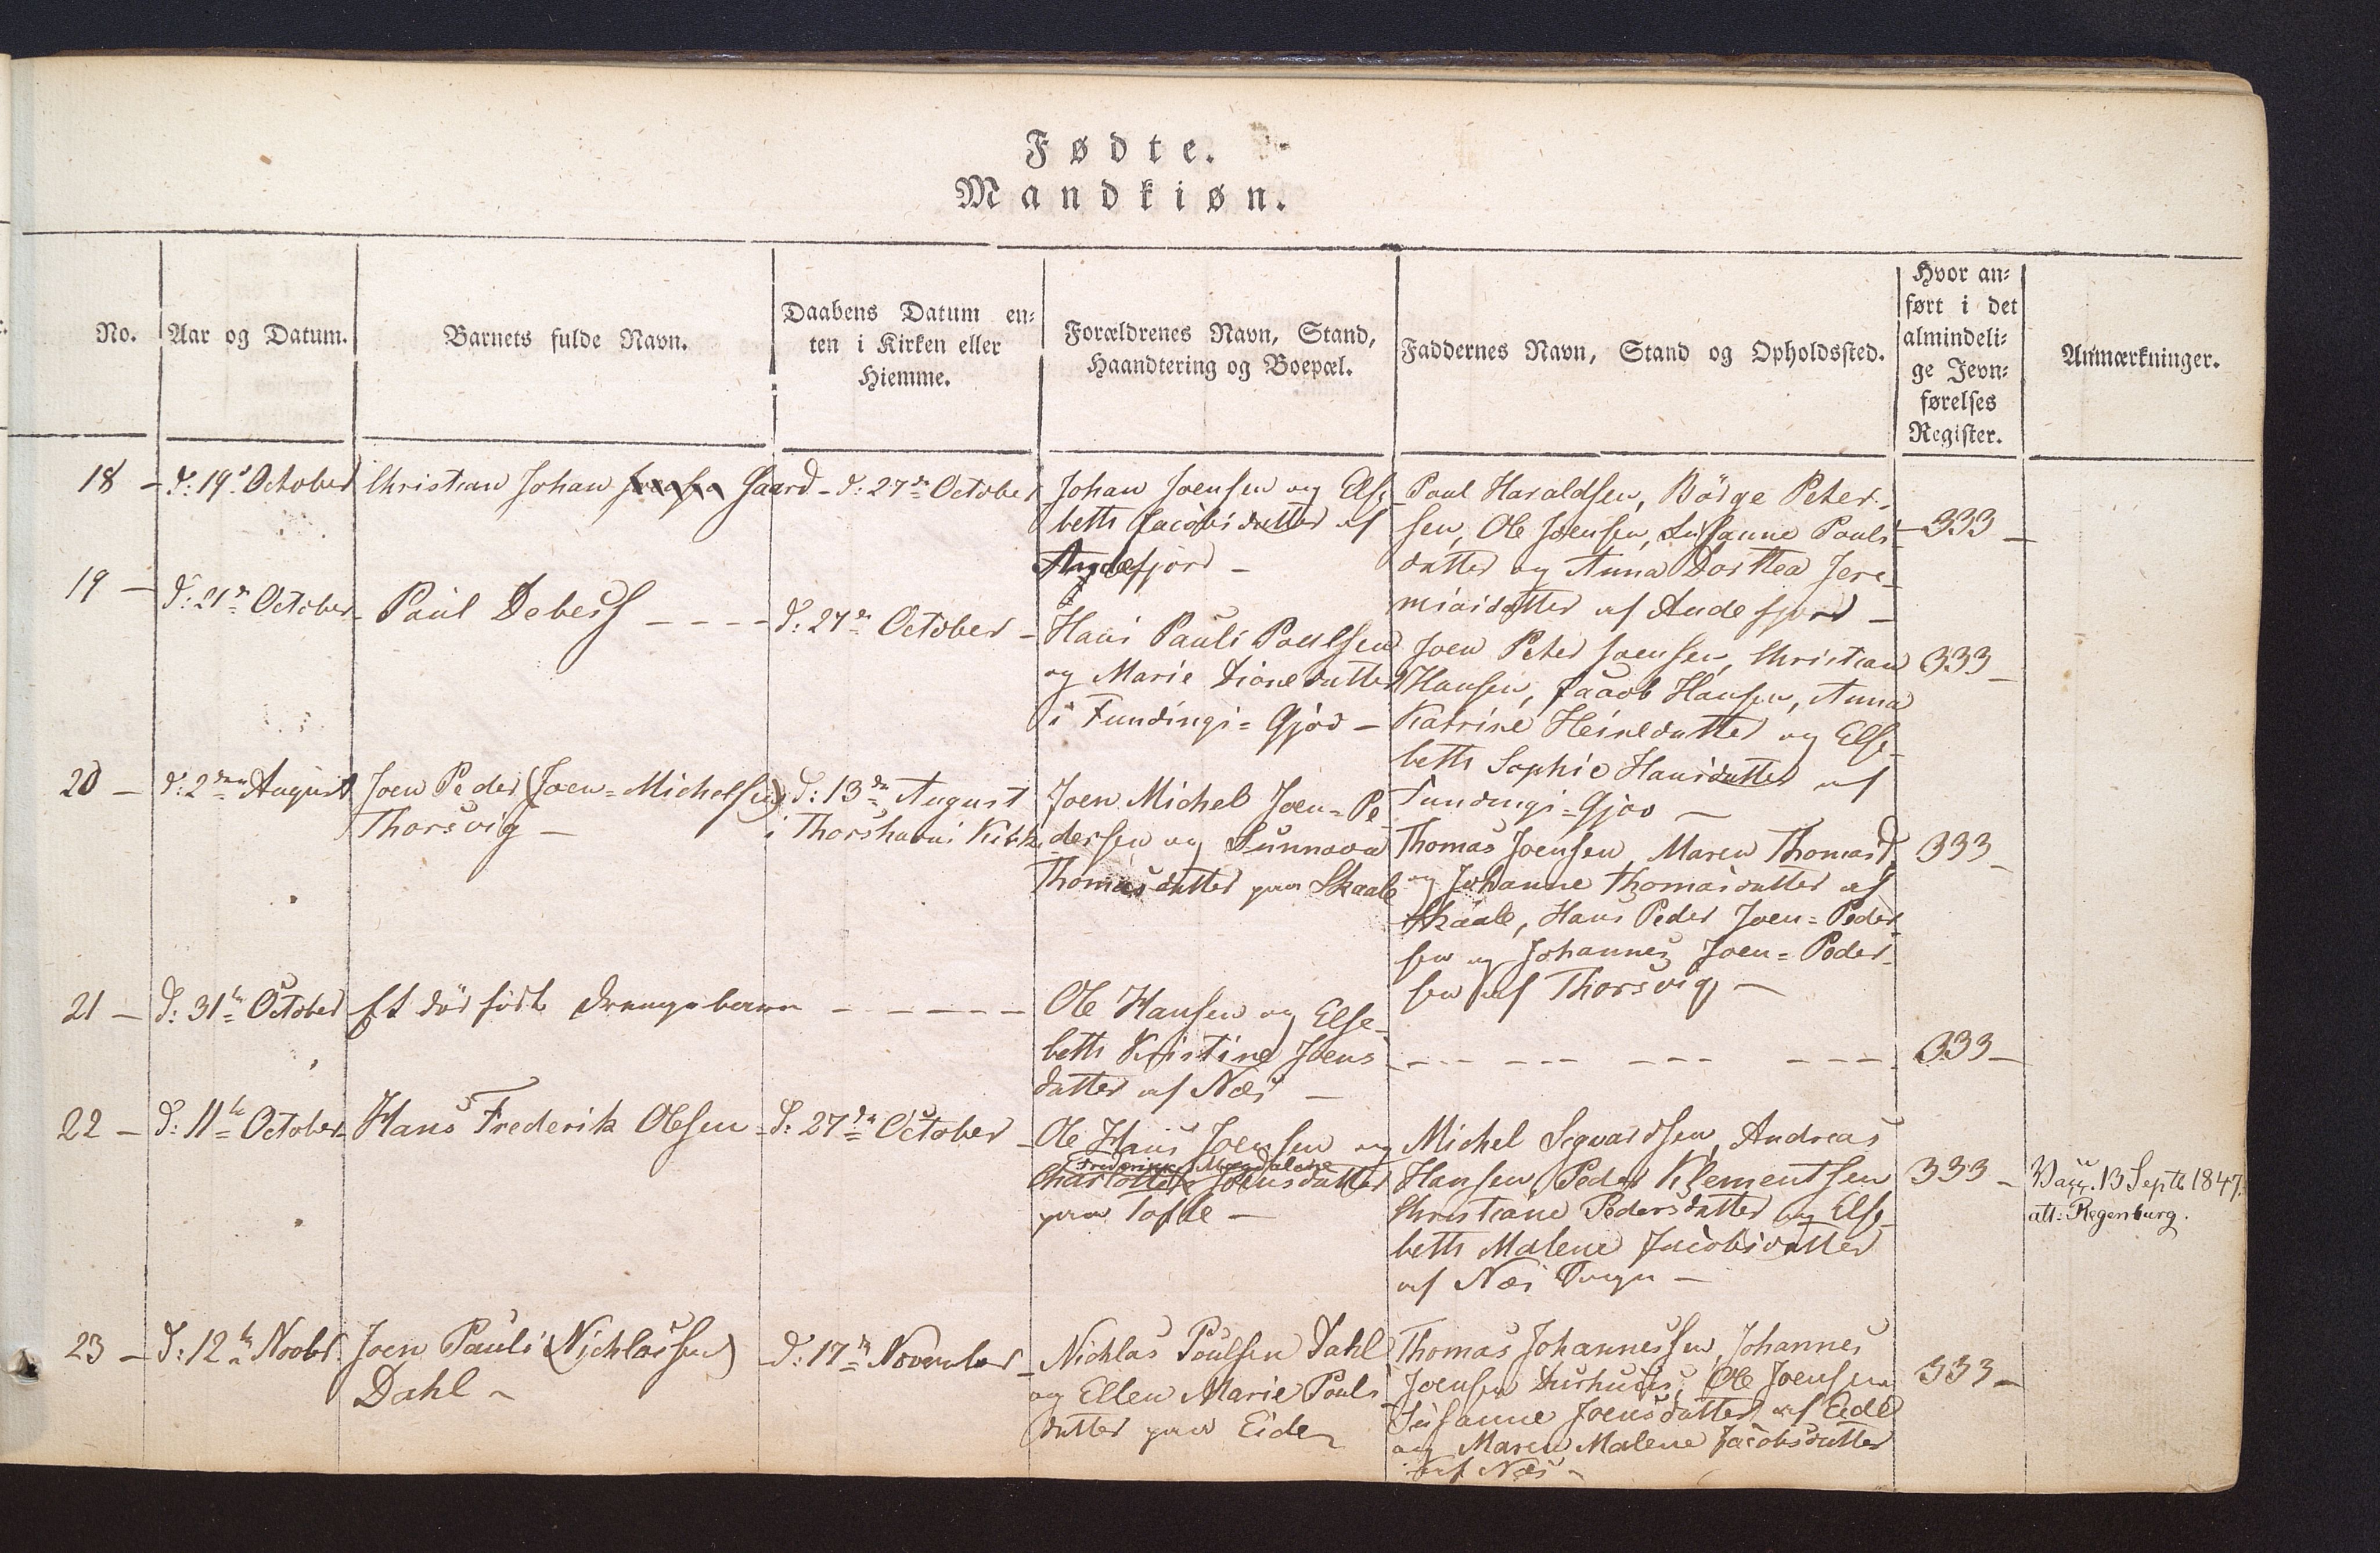 Fødte.
Mandkiøn.
No.
Aar og Datum.
Barnets fulde Navn.
Daabens Datum en-
ten i Kirken eller
Hiemme.
Forældrenes Navn, Stand,
Haandtering og Boepæl.
Faddernes Navn, Stand og Opholdssted.
Hvor an-
ført i det
almindeli-
ge Jevn-
førelses
Register.
Anmærkninger.
18 -
d: 19de October
Christian Johan Gaard -
d: 27de October
Johan Joensen og Else-
beth Jacobsdatter af
Andefjord -
Poul Haraldsen, Börge Peter-
sen, Ole Joensen, Susanne Pouls
datter og Anna Dorthea Jere-
miasdatter af Andefjord -
333 -
19 -
d: 21de October -
Paul Debess - - - -
d: 27de October -
Hans Pauli Poulsen
og Marie Dionedatter
i Fundings-Gjov -
Joen Peter Joensen, Christian
Hansen, Jacob Hansen, Anna
Katrine Heinedatter og Else-
beth Sophie Hansdatter af
Fundings-Gjov -
333 -
20 -
d: 2den August
Joen Peder (Joen-Michelsen)
Thorsvig -
d: 13de August
i Thorshavns Kirke
Joen Michel Joen-Pe-
dersen og Sunnova
Thomasdatter paa Skaale
Thomas Joensen, Maren Thomasd.
og Johanne Thomasdatter af
Skaale, Hans Peder Joen-Peder-
sen og Johannes Joen-Peder-
sen af Thorsvig -
333 -
21 -
d: 31te October
Et död födt Drengebarn - - - - - -
Ole Hansen og Else-
beth Kristine Joens
datter af Næs -
- - - - - - - - - - - -
333 -
22 -
d: 11te October -
Hans Frederik Olesen -
d: 27de October -
Ole Hans Joensen og
Frederikke Magdalene
Charlotte Joensdatter
paa Tofte -
Michel Sigvardsen, Andreas
Hansen, Peder Klementsen
Christiane Pedersdatter og Else-
beth Malene Jacobsdatter
af Næs
333 -
Vacc. 13 Septb 1847.
att: Regenburg.
23 -
d: 12te Novbr.
Joen Pauli (Nichlassen)
Dahl -
d: 17de November -
Nichlas Poulsen Dahl
og Ellen Marie Pouls
datter paa Eide -
Thomas Johannessen, Johannes
Joensen Durhuus, Ole Joensen
Susanne Joensdatter af Eide
og Maren Malene Jacobsdatter
af Næs -
333 -